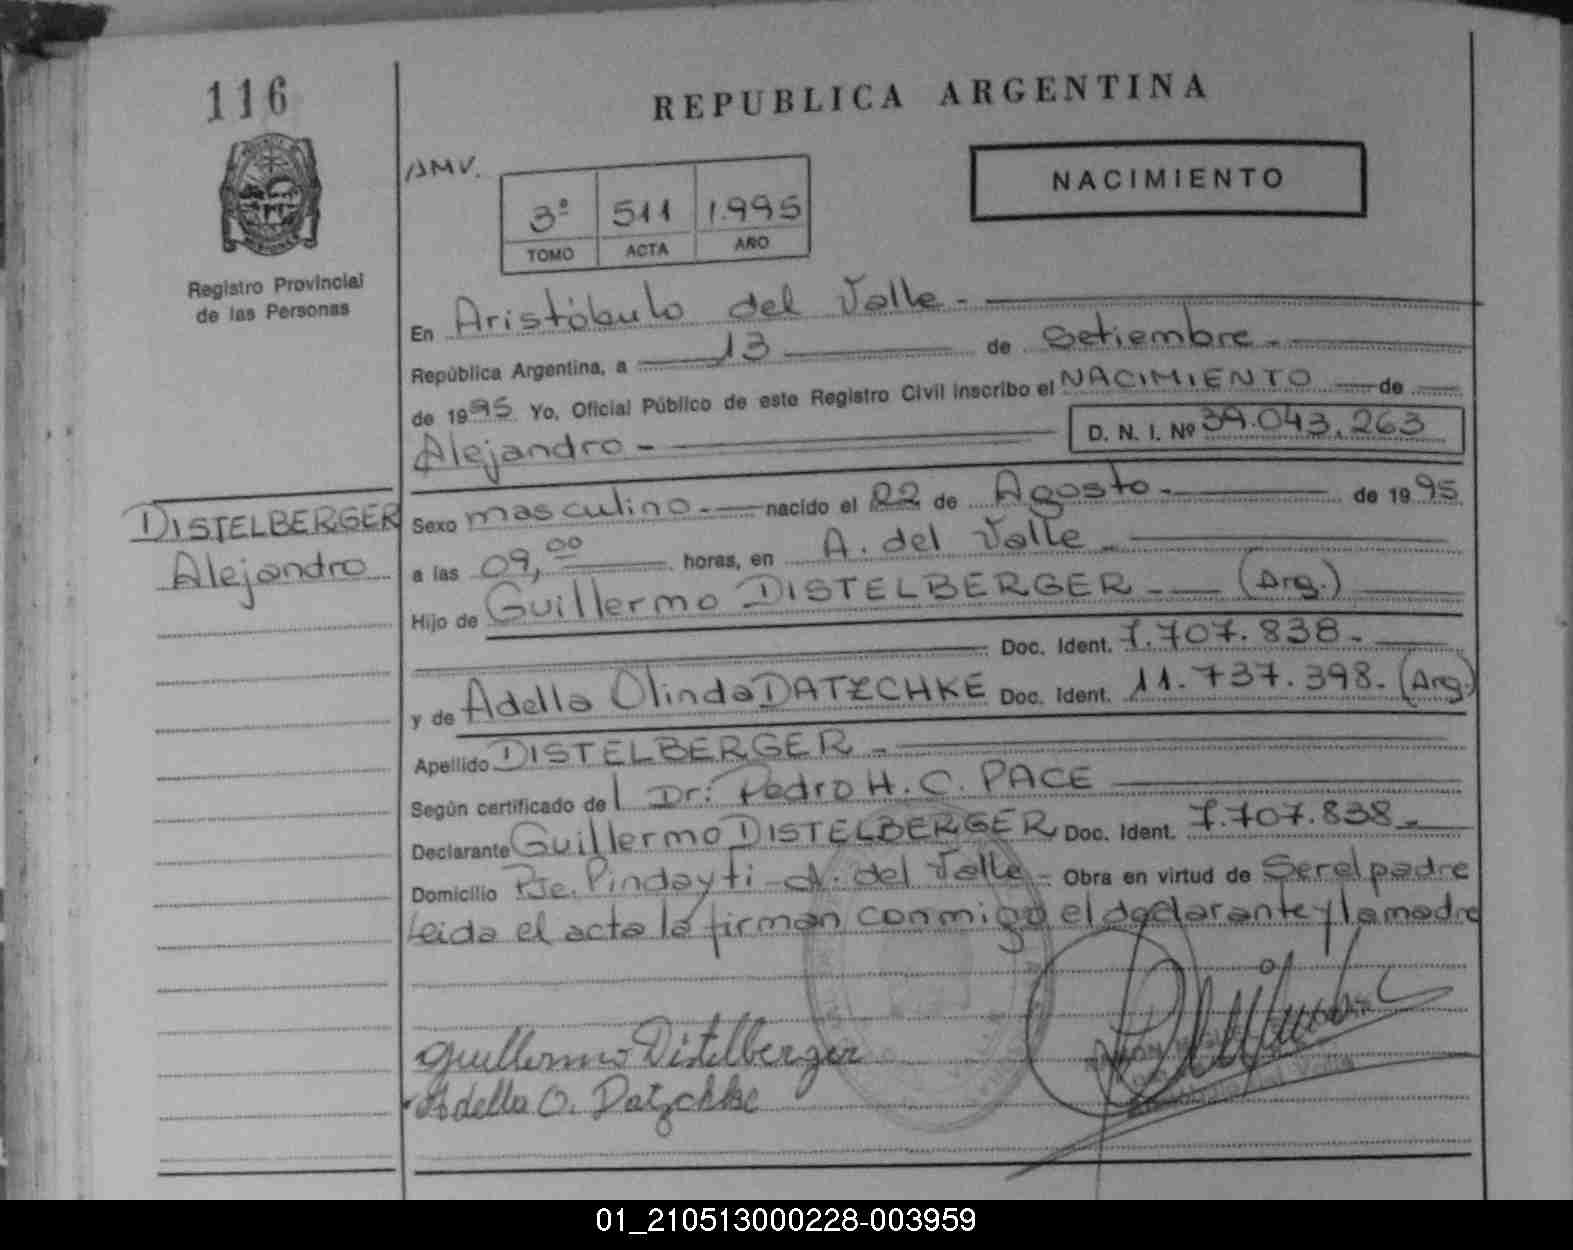 116
REPUBLICA ARGENTINA
AMV.
NACIMIENTO
3º 511 1.995
TOMO ACTA AÑO
Registro Provincial
de las Personas
En Aristóbulo del Valle.-
República Argentina, a 13 de Setiembre.-
de 1995 Yo, Oficial Público de este Registro Civil inscribo el NACIMIENTO de
Alejandro.- D. N. I. Nº 39.043.263
DISTELBERGER
Alejandro
Sexo masculino.- nacido el 22 de Agosto.- de 1995
a las 09,00 horas, en A. del Valle.-
Hijo de Guillermo DISTELBERGER.- (Arg.)
Doc. Ident. 7.707.838.-
y de Adella Olinda DATZCHKE Doc. Ident. 11.737.398.- (Arg.)
Apellido DISTELBERGER.-
Según certificado del Dr: Pedro H. C. PACE
Declarante Guillermo DISTELBERGER Doc. Ident. 7.707.838.-
Domicilio Pje. Pindayti - A. del Valle.- Obra en virtud de Ser el padre
Leida el acta la firman conmigo el declarante y la madre
Guillermo Distelberger
Adella O. Datzchke
01_210513000228-003959